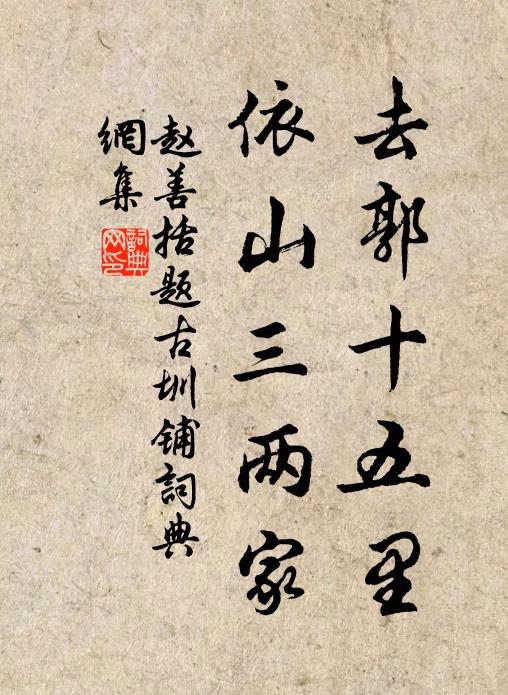 去郭十五里
依山三两家
赵善括题古圳铺詞典
網集
詞典
网印